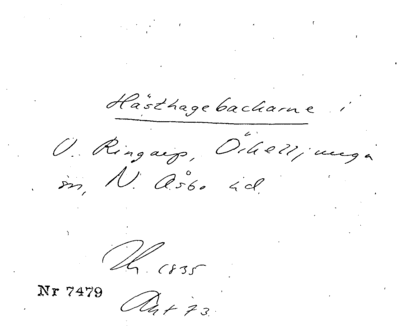 Hästhagebackarne i
V. Ringarp, Örkelljunga
sn, N. Åsbo hd.
Th. 1835
Nr 7479
Ant 73.